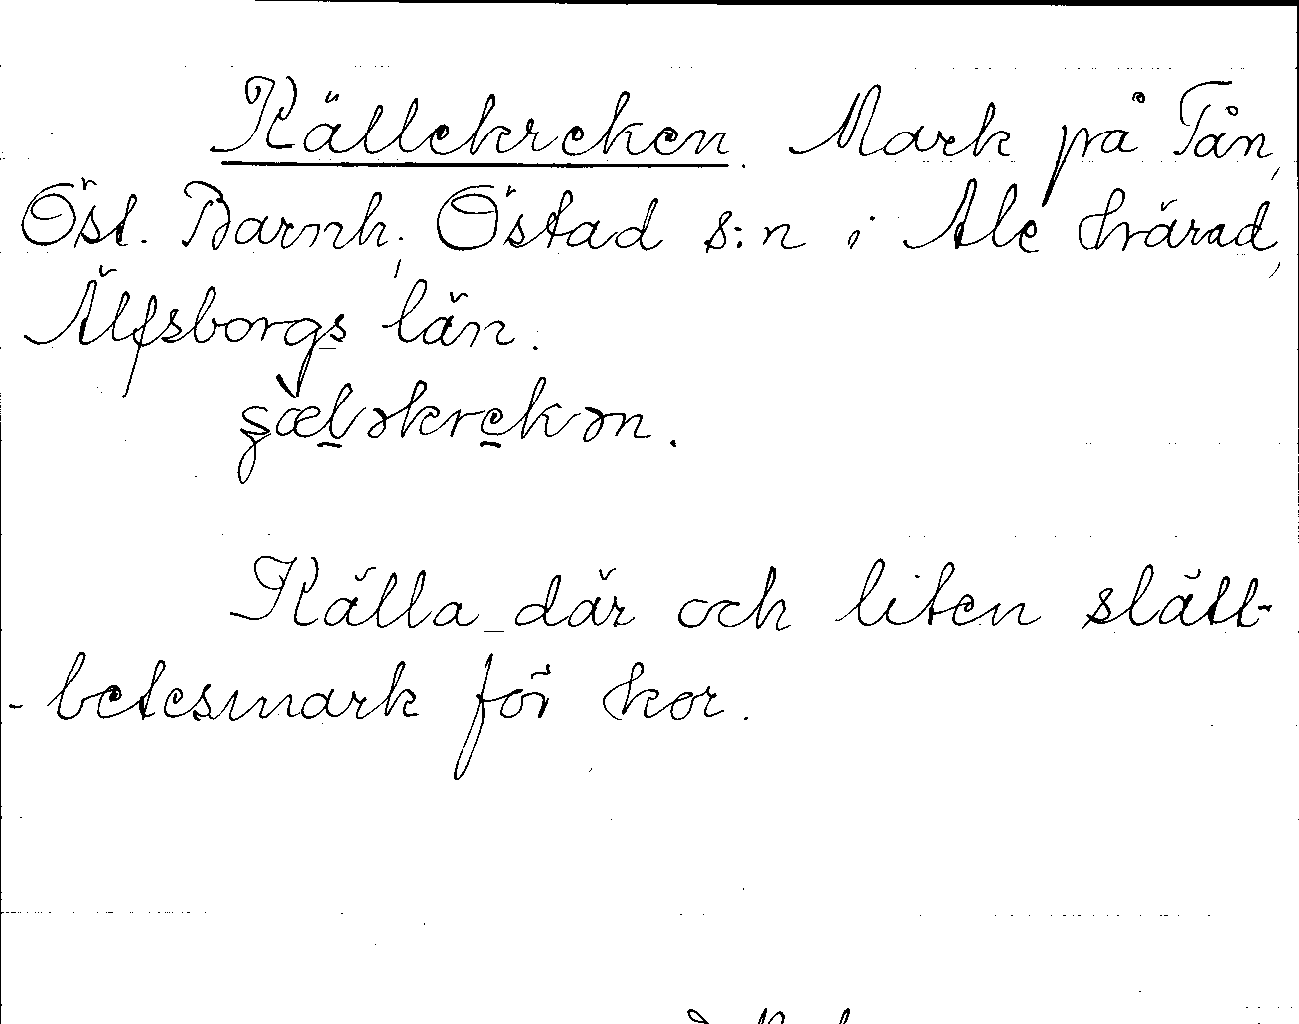 Källekreken. Mark på Tån,
Öst. Barnh., Östad s:n i Ale härad,
Älfsborgs län.
Källa där och liten slätt-
- betesmark för kor.